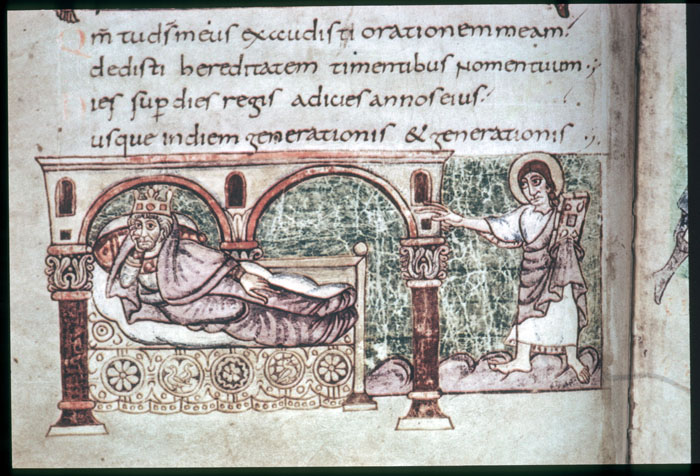 m̄ tu ds̄ meus exaudisti orationem meam:
dedisti hereditatem timentibus nomen tuum;
ies sup̄ dies regis adicies annos eius:
usque in diem generationis & generationis;